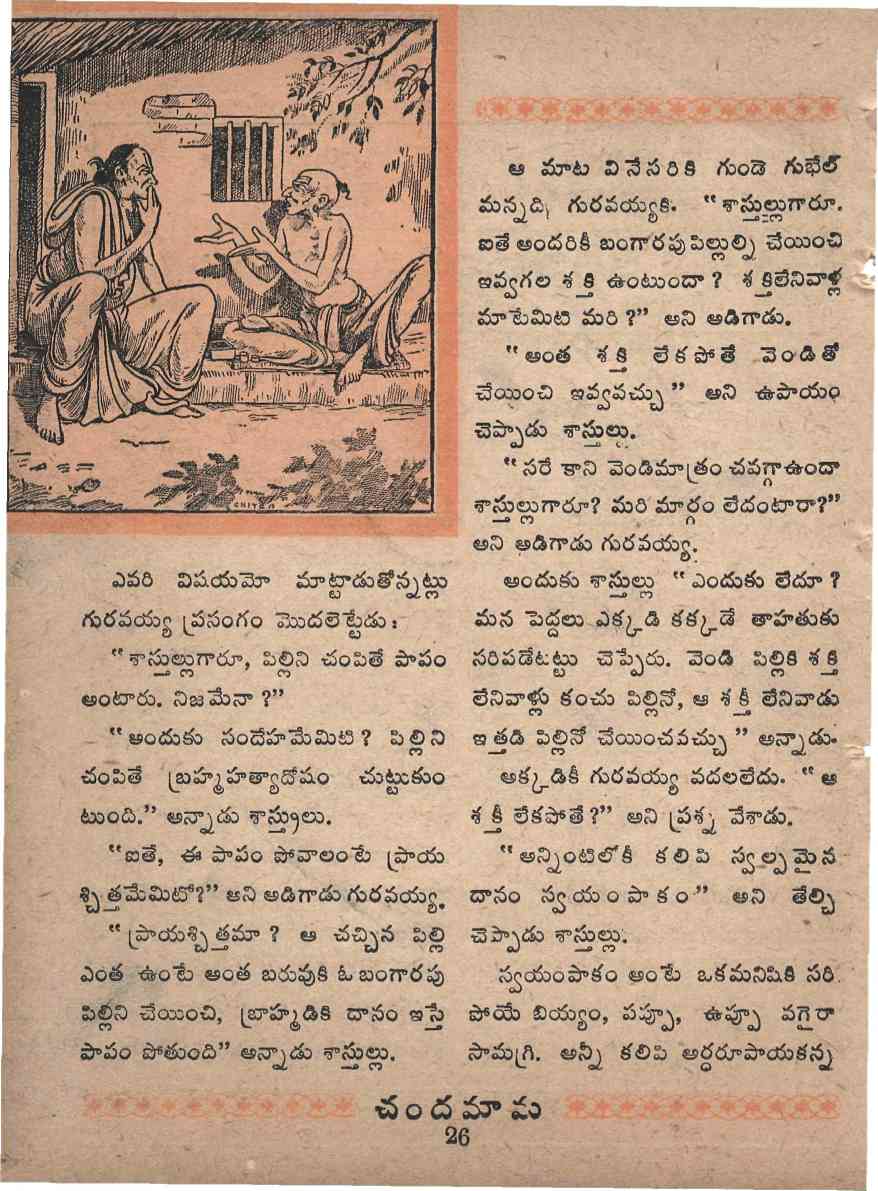 CHITRA
ఎవరి విషయమో మాట్టాడుతోన్నట్లు
గురవయ్య ప్రసంగం మొదలెట్టేడు :
“ శాస్తుల్లుగారూ, పిల్లిని చంపితే పాపం
అంటారు. నిజమేనా ?”
“ అందుకు సందేహమేమిటి ? పిల్లిని
చంపితే బ్రహ్మహత్యాదోషం చుట్టుకుం
టుంది.” అన్నాడు శాస్త్రులు.
“ఐతే, ఈ పాపం పోవాలంటే ప్రాయ
శ్చిత్తమేమిటో?” అని అడిగాడు గురవయ్య.
“ ప్రాయశ్చిత్తమా ? ఆ చచ్చిన పిల్లి
ఎంత ఉంటే అంత బరువుకి ఓ బంగారపు
పిల్లిని చేయించి, బ్రాహ్మడికి దానం ఇస్తే
పాపం పోతుంది” అన్నాడు శాస్తుల్లు.
ఆ మాట వినేసరికి గుండె గుభేల్
మన్నది, గురవయ్యకి. “ శాస్తుల్లుగారూ.
ఐతే అందరికీ బంగారపుపిల్లుల్ని చేయించి
ఇవ్వగల శక్తి ఉంటుందా ? శక్తిలేనివాళ్ల
మాటేమిటి మరి ?” అని అడిగాడు.
“ అంత శక్తి లేకపోతే వెండితో
చేయించి ఇవ్వవచ్చు ” అని ఉపాయం
చెప్పాడు శాస్తులు.
“ సరే కాని వెండిమాత్రం చవగ్గాఉందా
శాస్తుల్లుగారూ? మరి మార్గం లేదంటారా?”
అని అడిగాడు గురవయ్య.
అందుకు శాస్తుల్లు “ ఎందుకు లేదూ ?
మన పెద్దలు ఎక్కడి కక్కడే తాహతుకు
సరిపడేటట్టు చెప్పేరు. వెండి పిల్లికి శక్తి
లేనివాళ్లు కంచు పిల్లినో, ఆ శక్తీ లేనివాడు
ఇత్తడి పిల్లినో చేయించవచ్చు ” అన్నాడు.
అక్కడికీ గురవయ్య వదలలేదు. “ ఆ
శక్తీ లేకపోతే ?” అని ప్రశ్న వేశాడు.
“ అన్నింటిలోకీ కలిపి స్వల్పమైన
దానం స్వయంపాకం” అని తేల్చి
చెప్పాడు శాస్తుల్లు.
స్వయంపాకం అంటే ఒకమనిషికి సరి
పోయే బియ్యం, పప్పూ, ఉప్పూ వగైరా
సామగ్రి. అన్నీ కలిపి అర్ధరూపాయకన్న
చందమామ
26